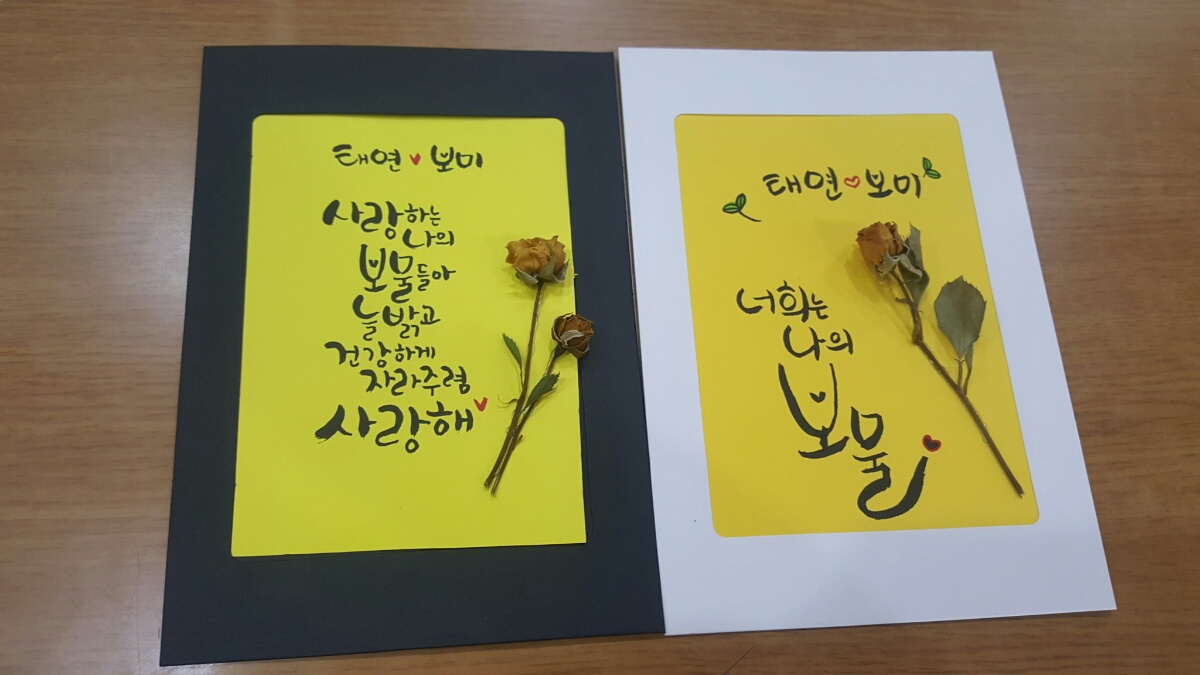 태연 보미
사랑하는
나의
보물들아
늘 밝고
건강하게
자라주렴
사랑해
태연 보미
너희는
나의
보물